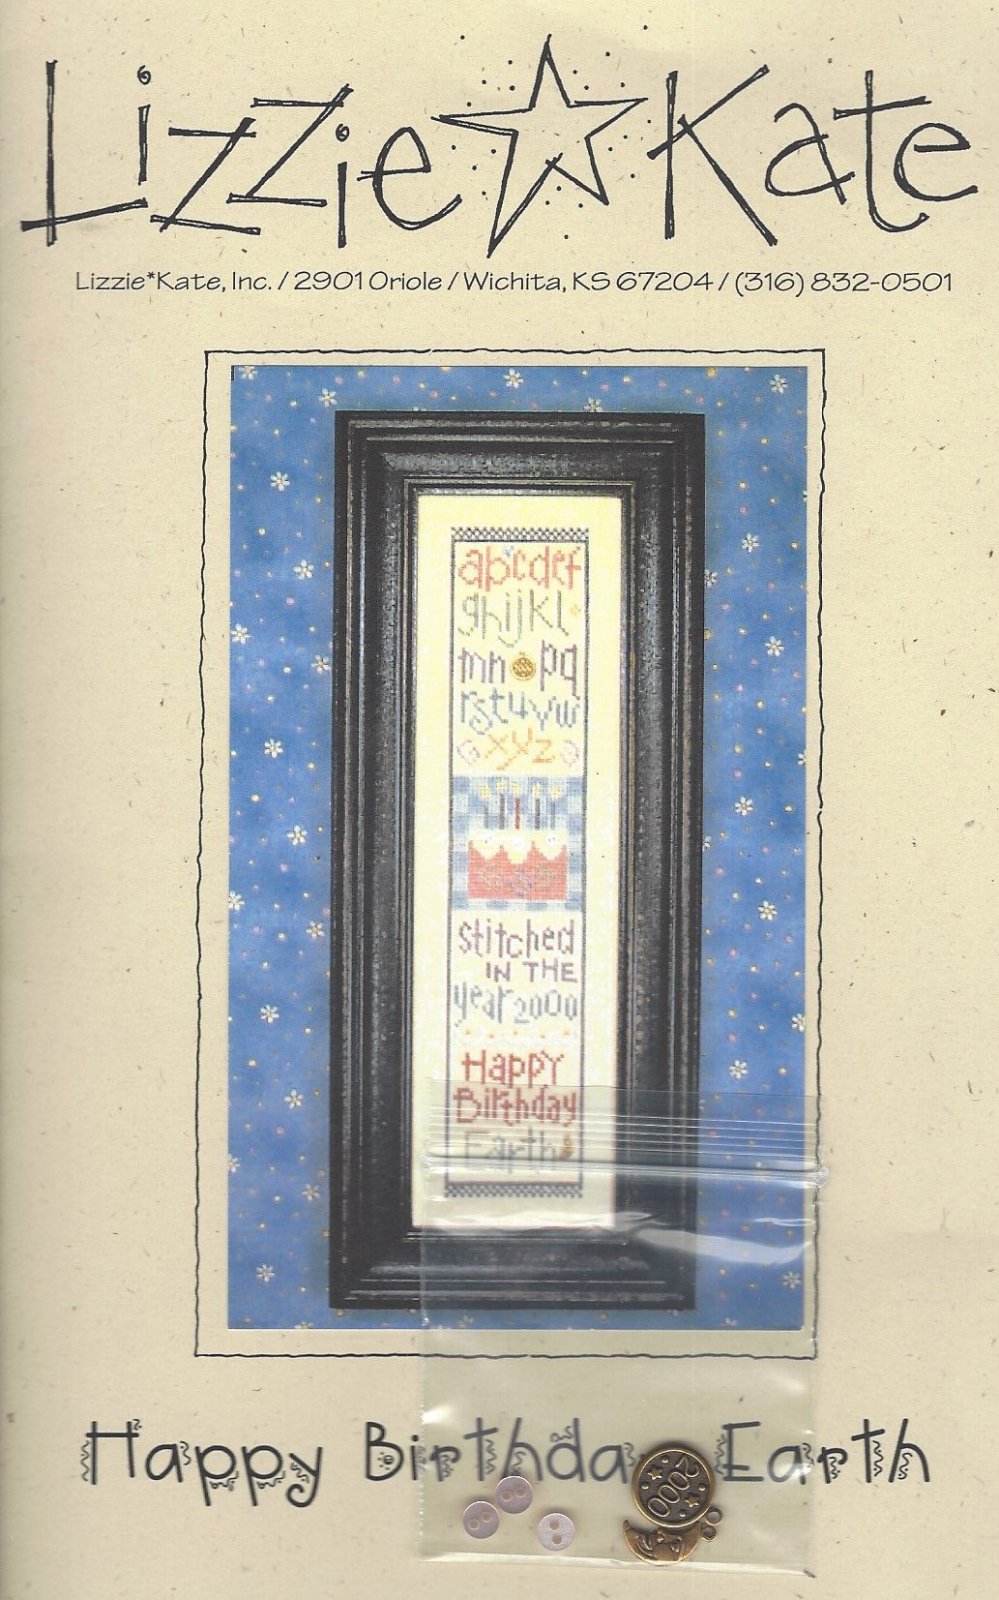 Lizzie Kate
Lizzie*Kate, Inc. / 2901 Oriole / Wichita, KS 67204 / (316) 832-0501
abcdef
ghijkl
mn pq
rstuvw
xyz
stitched
IN THE
year 2000
Happy
Birthday
Earth
Happy Birthda Earth
2000